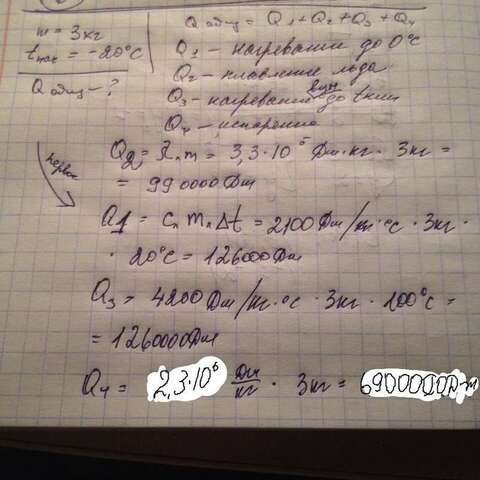 m = 3кг
tнач = -20°C
Qобщ - ?
Qобщ = Q1 + Q2 + Q3 + Q4
Q1 - нагревании до 0°C
Q2 - плавление льда
Q3 - нагревание воды до tкип
Q4 - испарение
Q2 = λ л m = 3,3·10⁶ Дж·кг · 3кг =
= 990000Дж
Q1 = cл mл Δt = 2100Дж/кг·°C · 3кг ·
· 20°C = 126000Дж
Q3 = 4200Дж/кг·°C · 3кг · 100°C =
= 1260000Дж
Q4 = 2,3·10⁶ Дж/кг · 3кг = 6900000Дж